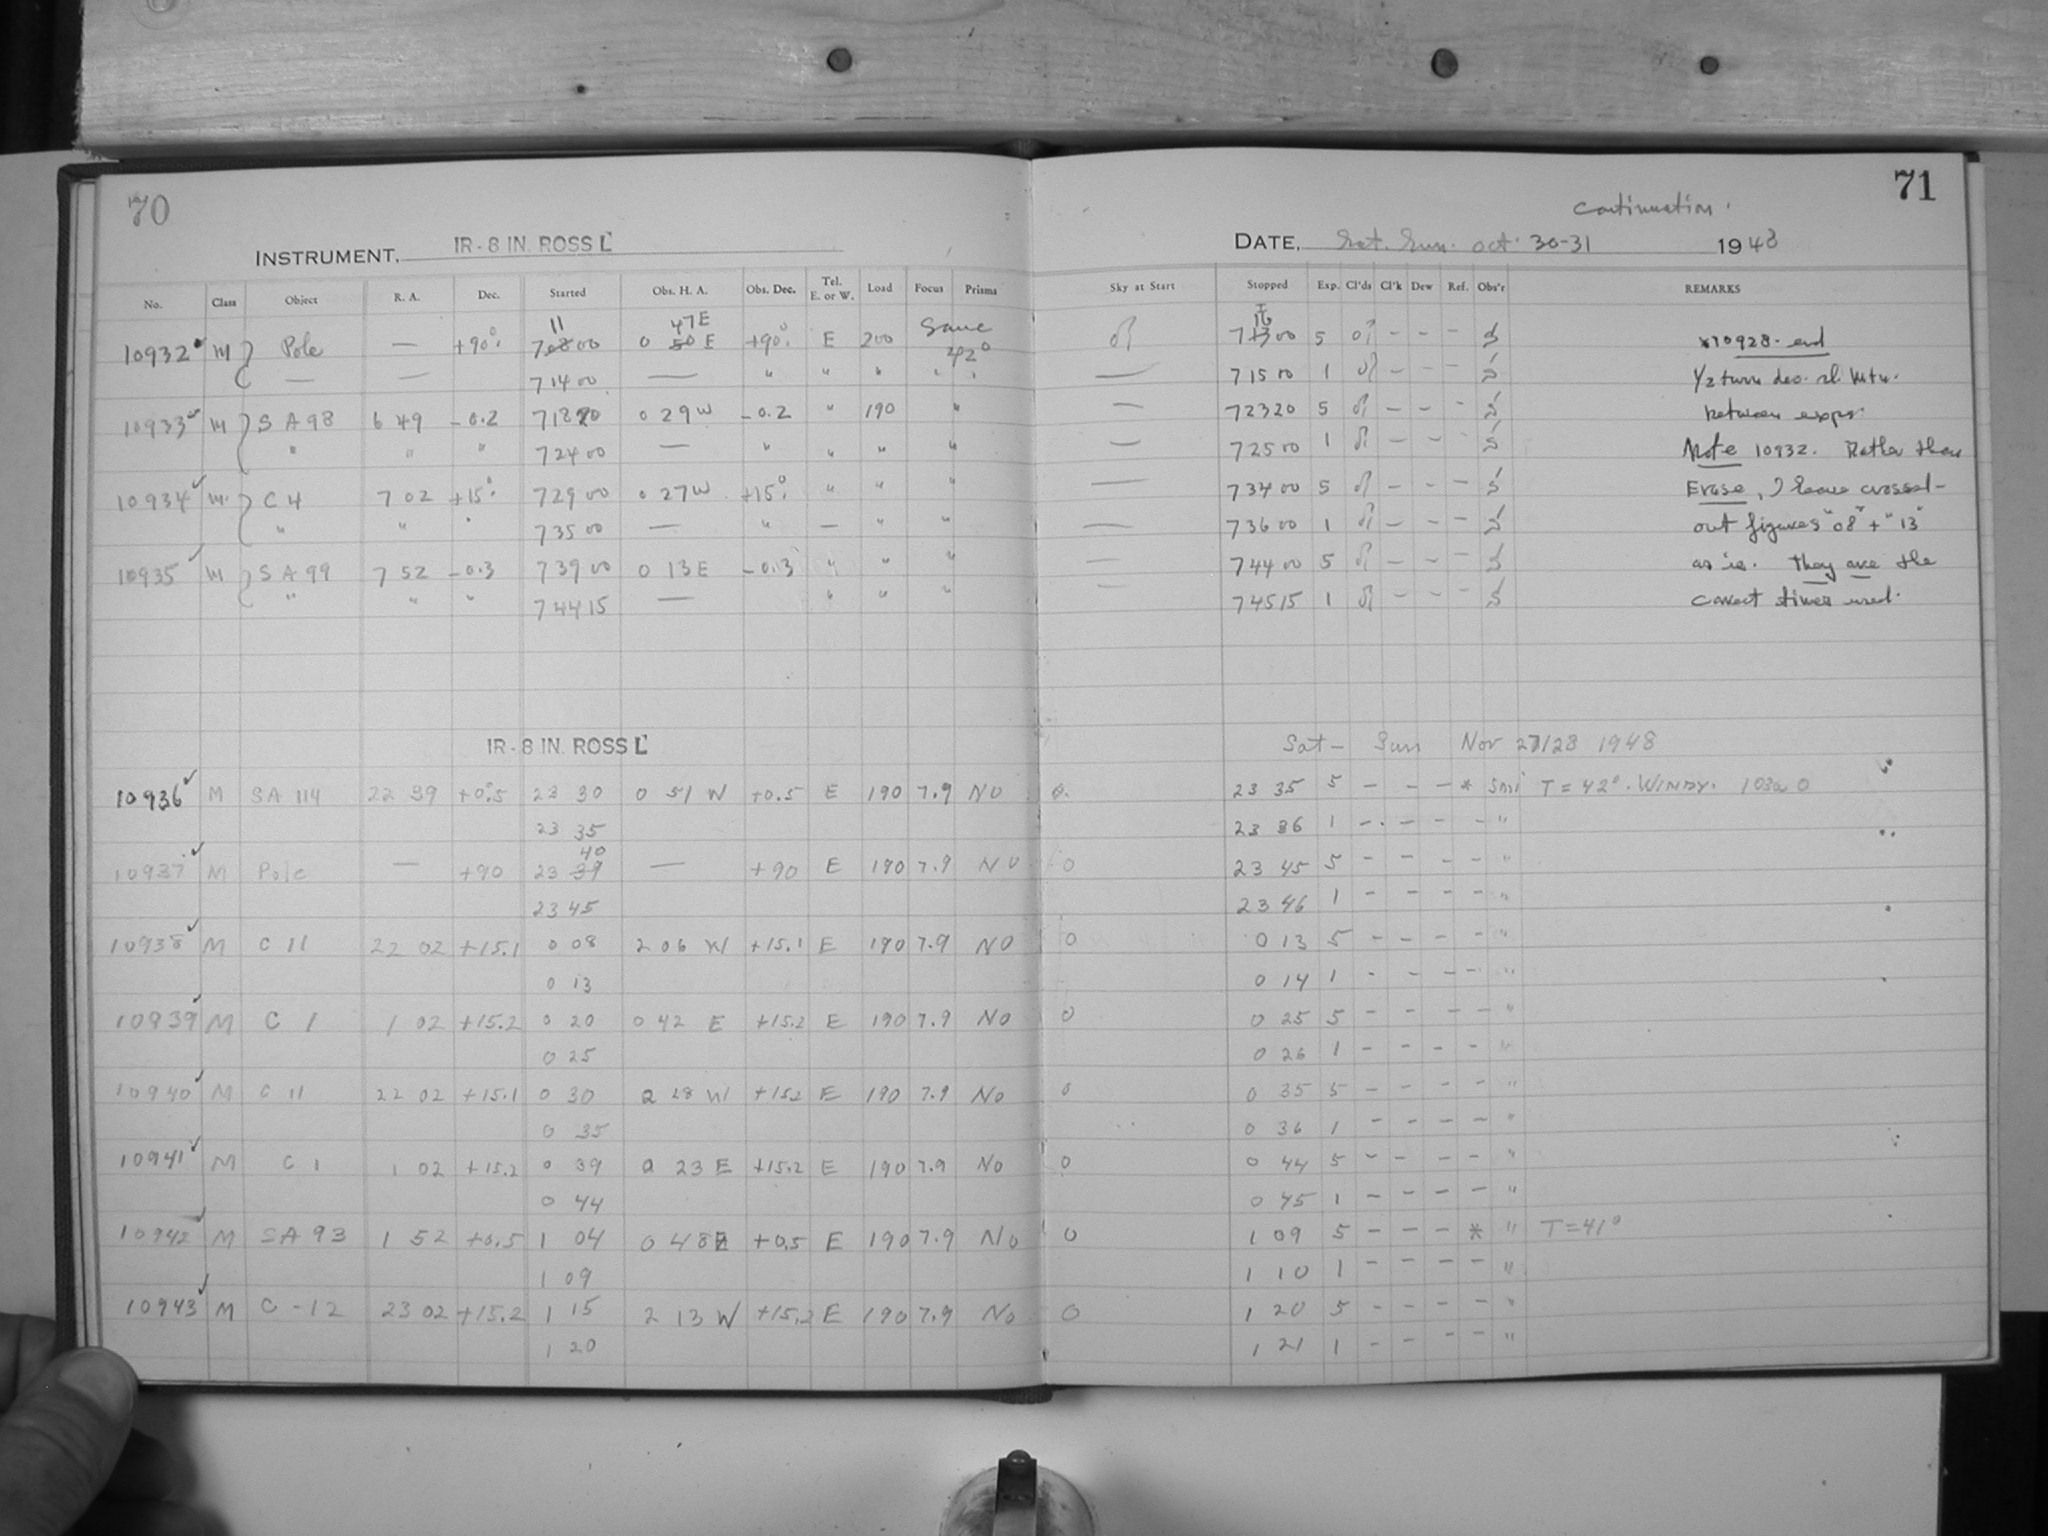 70
71
continuation.
INSTRUMENT, IR-8 IN. ROSS L
DATE, Sat. Sun. Oct. 30-31 1948
No. Class Object R. A. Dec. Started Obs. H. A. Obs. Dec. Tel. E. or W. Load Focus Prisms Sky at Start Stopped Exp. Cl'ds Cl'k Dew Ref. Obs'r REMARKS
11 47E 16
10932 M Pole — +90° 7 08 00 0 50 E +90° E 200 Same 42° 7 13 00 5 - - - x10928-end
— — 7 14 00 — " " " " " — 7 15 00 1 - - - 1/2 turn dec. sl. mtn.
10933 M SA 98 6 49 -0.2 7 18 20 0 29 W -0.2 " 190 " — 7 23 20 5 - - - between exps.
" " " 7 24 00 — " " " " — 7 25 00 1 - - - Note 10932. Rather than
10934 M. C 4 7 02 +15° 7 29 00 0 27 W +15° " " " — 7 34 00 5 - - - Erase, I leave crossed-
" " " 7 35 00 — " — " " — 7 36 00 1 - - - out figures "08" + "13"
10935 M SA 99 7 52 -0.3 7 39 00 0 13 E -0.3 " " " — 7 44 00 5 - - - as is. They are the
" " " 7 44 15 — " " " 7 45 15 1 - - - correct times used.
IR-8 IN. ROSS L
Sat - Sun Nov 27/28 1948
10936 M SA 114 22 39 +0.5 23 30 0 51 W +0.5 E 190 7.9 NO 0. 23 35 5 - - - * Smi T = 42°. WINDY. 103a O
23 35 23 36 1 - - - - "
40
10937 M Pole — +90 23 39 — +90 E 190 7.9 NO 0 23 45 5 - - - - "
23 45 23 46 1 - - - - "
10938 M C 11 22 02 +15.1 0 08 2 06 W +15.1 E 190 7.9 NO 0 0 13 5 - - - - "
0 13 0 14 1 - - - - "
10939 M C 1 1 02 +15.2 0 20 0 42 E +15.2 E 190 7.9 No 0 0 25 5 - - - - "
0 25 0 26 1 - - - - "
10940 M C 11 22 02 +15.1 0 30 2 28 W +15.2 E 190 7.9 No 0 0 35 5 - - - - "
0 35 0 36 1 - - - - "
10941 M C 1 1 02 +15.2 0 39 0 23 E +15.2 E 190 7.9 No 0 0 44 5 - - - - "
0 44 0 45 1 - - - - "
10942 M SA 93 1 52 +0.5 1 04 0 48 E +0.5 E 190 7.9 No 0 1 09 5 - - - * " T=41°
1 09 1 10 1 - - - - "
10943 M C-12 23 02 +15.2 1 15 2 13 W +15.2 E 190 7.9 No 0 1 20 5 - - - - "
1 20 1 21 1 - - - - "